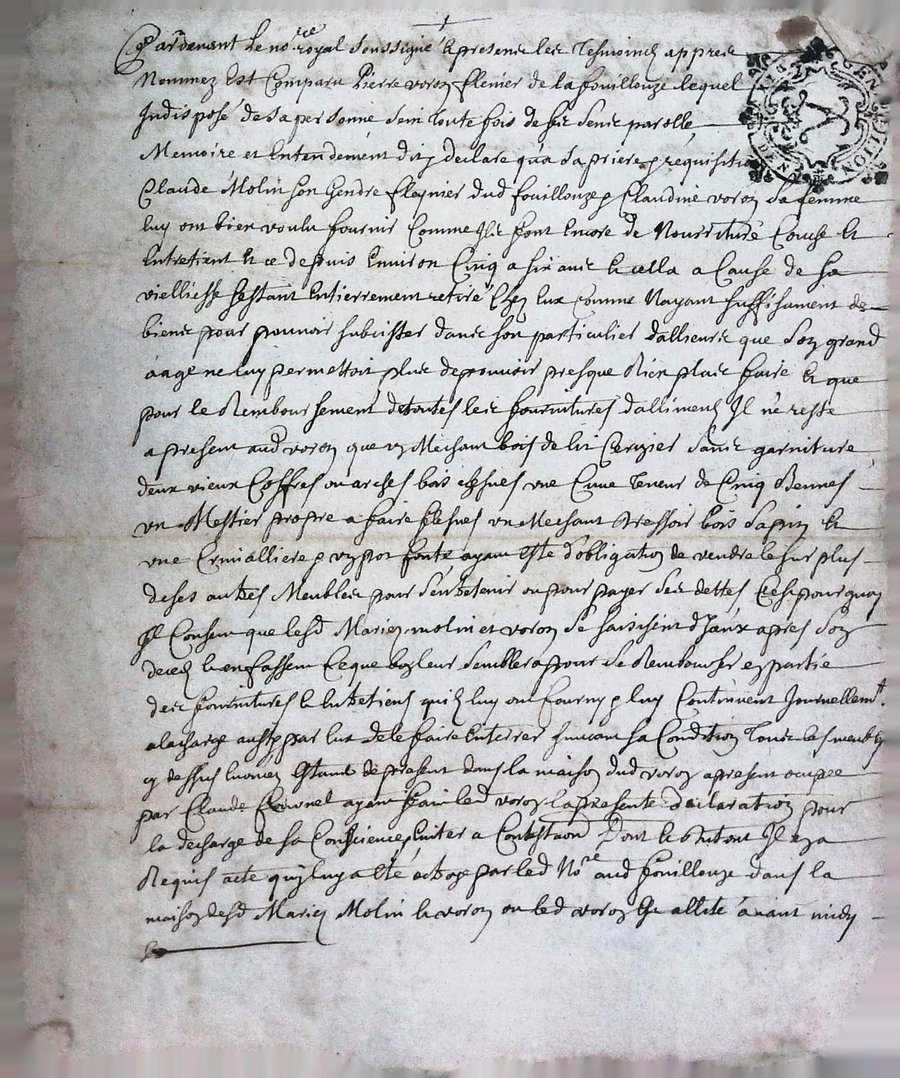 Pardevant le no.re royal soussigné et presence les tesmoins appres
Nommez Est Comparu Pierre voron de la fouillouze lequel
Indisposé de sa personne sein toute fois de ses sens parolle
Memoire et Entendement dit et declare qu'a sa priere et requisition
Claude Molin son gendre dud fouillouze et Claudine voron sa femme
luy ont bien voulu fournir Comme Ils font encore de Nourriture Couche et
Entretient et ce depuis Environ Cinq a six ans et cella a Cause de sa
vielliesse sestant Entierrement retiré Chez eux comme Nayant suffisament de
biens pour pouvoir subcister dans son particulier dallieurs que son grand
aage ne luy permettoit plus de pouvoir presque Rien plus faire et que
pour le Remboursement de toutes les fournitures dalliments Il ne reste
a present aud voron que un Mechant bois de lit Cerizier sans garniture
deux vieux Coffres ou arches bois une Cuve teneur de Cinq Bennes
un Mestier propre a faire un Mechant pressoir bois sapin et
une Crmalliere et un pot fonte ayant esté d'obligation de vendre le surplus
de ses autres Meubles pour sentretenir ou pour payer ses dettes Cest pourquoy
Il Consent que lesd Mariez molin et voron se saisisent d'Iceux apres son
deces et en fassent Ce que bon leur semblera pour se Rembourser en partie
des fournitures et Entretiens quils luy ont fourny et luy Continuent Journellemt
a la charge aussy par eux de le faire Enterrer suivant sa Condition Tous les meubles
cy dessus Enoncez Estants de present dans la maison dud voron a present ocupée
par Claude ayant fait led voron la presente declaration pour
la decharge de sa Conscience Eviter a Contestaon Dont et du tout Il en a
Requis acte qui luy a été octroyé par led No.re aud fouillouze dans la
maison desd Mariez Molin et voron ou led voron Est allité avant midy